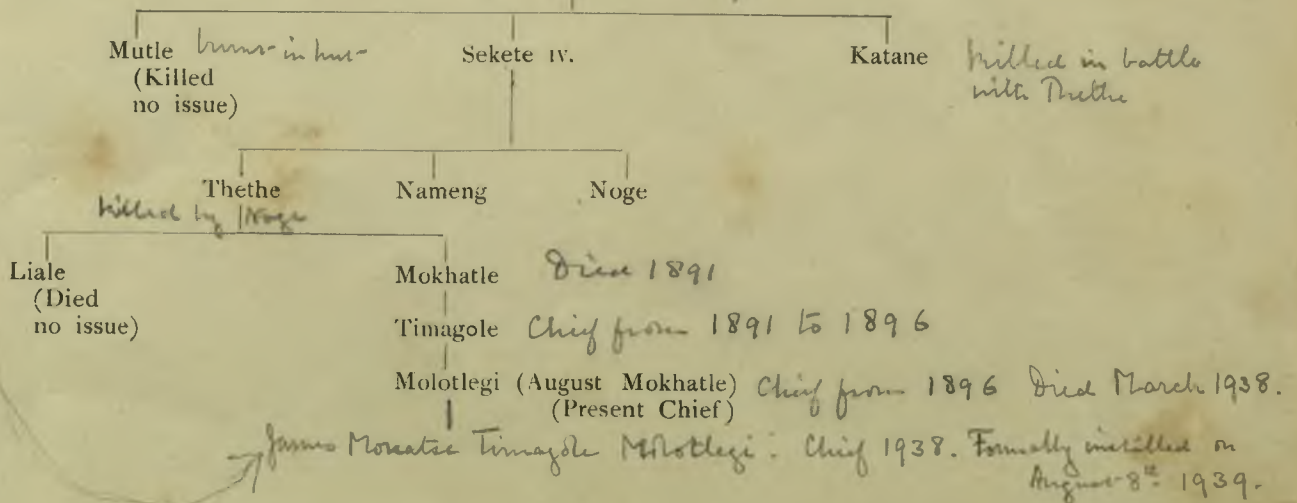 Mutle burnt in hut
(Killed
no issue)
Sekete IV.
Katane killed in battle
with Thethe
Thethe
Nameng
Noge
killed by Noge
Liale
(Died
no issue)
Mokhatle Died 1891
Timagole Chief from 1891 to 1896
Molotlegi (August Mokhatle) Chief from 1896 Died March 1938.
(Present Chief)
James Monatse Timagole Molotlegi : Chief 1938. Formally installed on
August 8th 1939.